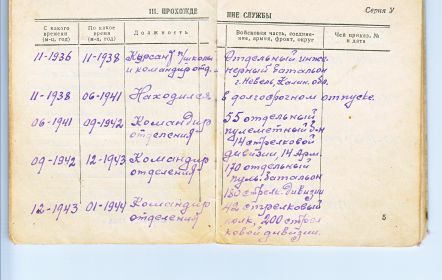 III. ПРОХОЖДЕ НИЕ СЛУЖБЫ
Серия У
С какого времени (м-ц, год) По какое время (м-ц, год) Должность Войсковая часть, соединение, армия, фронт, округ Чей приказ, № и дата
11-1936 11-1938 Курсант п/школы Отдельный инже-
и командир отд. нерный батальон
г. Невель, Калин. обл.
11-1938 06-1941 Находился в долгосрочном отпуске.
06-1941 09-1942 Командир 55 отдельный
отделения пулеметный б-н
14 стрелковой
дивизии, 14 Арм.
09-1942 12-1943 Командир отдельный
отделения пуль. батальон
186 стрелк. дивизии
12-1943 01-1944 Командир 42 стрелковый
отделения полк, 200 стрел
ковой дивизии.
5